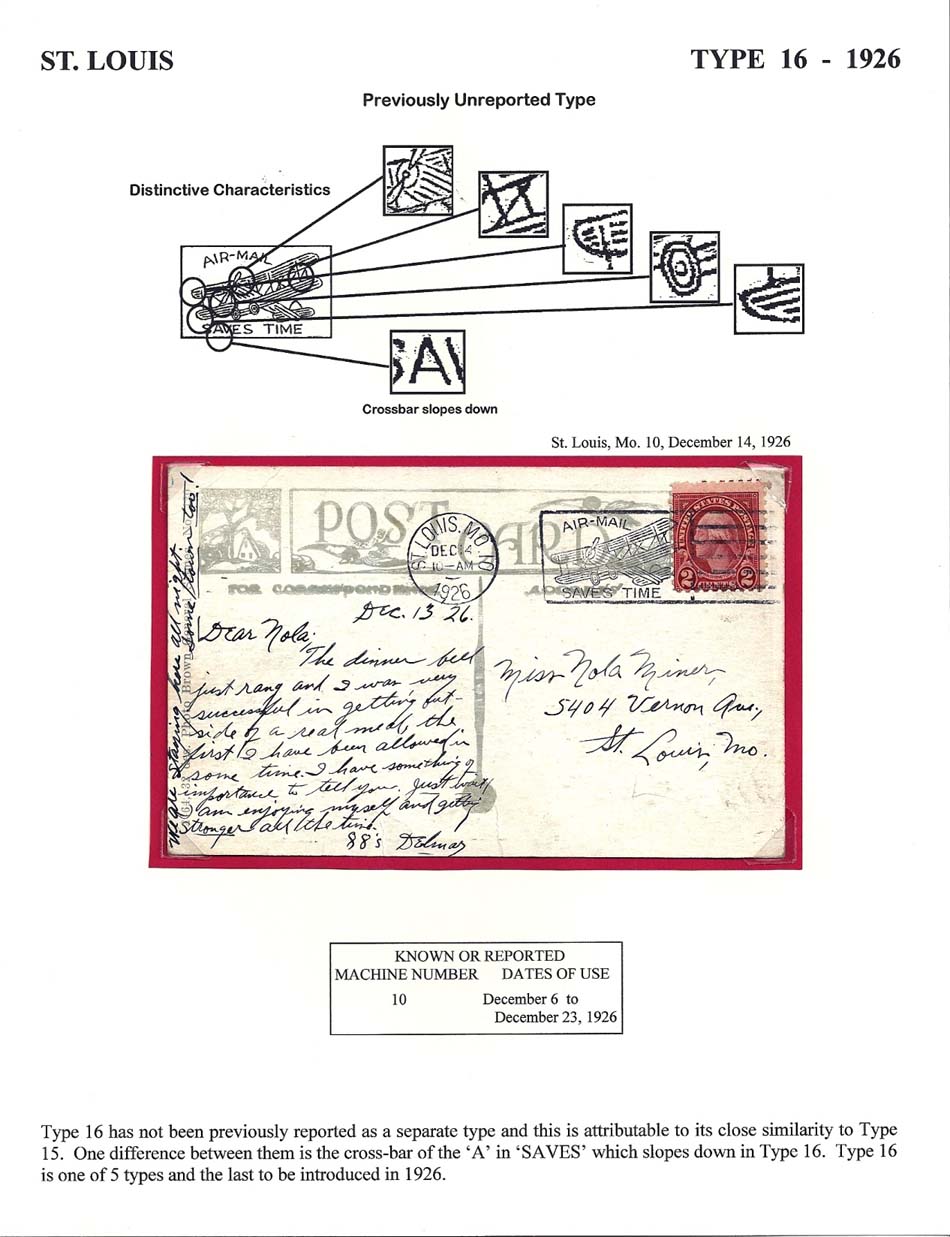 ST. LOUIS
TYPE 16 - 1926
Previously Unreported Type
Distinctive Characteristics
AIR-MAIL
SAVES TIME
SAV
Crossbar slopes down
St. Louis, Mo. 10, December 14, 1926
POST CARD
FOR CORRESPONDENCE
ST. LOUIS, MO. 10
DEC 14
10-AM
1926
AIR-MAIL
SAVES TIME
UNITED STATES POSTAGE
2 CENTS 2
Dec. 13 26.
Dear Nola;
The dinner bell
just rang and I was very
successful in getting out-
side of a real meal, the
first I have been allowed in
some time. I have something of
importance to tell you. Just
am enjoying myself and getting
stronger all the time.
88's Delmar
We are staying here all night.
Some town too!
Miss Nola Miner,
5404 Vernon Ave.,
St. Louis, Mo.
KNOWN OR REPORTED
MACHINE NUMBER DATES OF USE
10 December 6 to
December 23, 1926
Type 16 has not been previously reported as a separate type and this is attributable to its close similarity to Type
15. One difference between them is the cross-bar of the ‘A’ in ‘SAVES’ which slopes down in Type 16. Type 16
is one of 5 types and the last to be introduced in 1926.